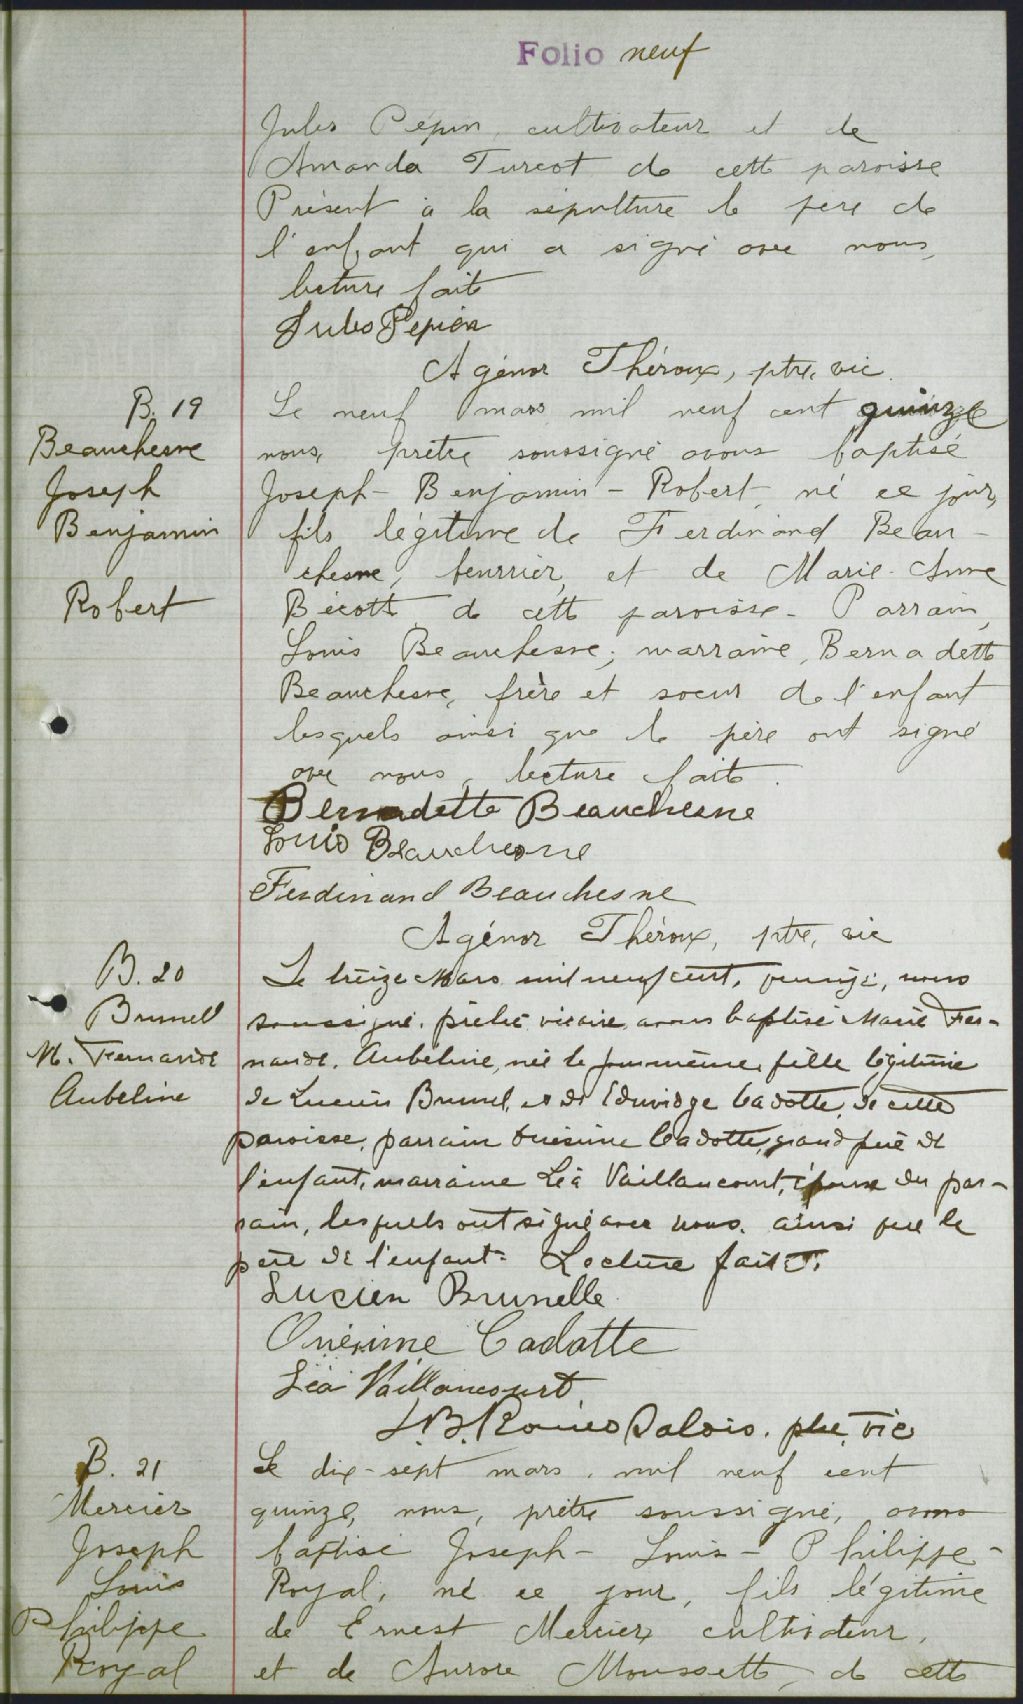 Folio neuf
Jules Pépin, cultivateur et de
Amanda Turcot de cette paroisse
Présent à la sépulture le père de
l'enfant qui a signé avec nous,
lecture faite
Jules Pépin
Agénor Théroux, ptre, vic.
B. 19
Beauchesne
Joseph
Benjamin
Robert
Le neuf mars mil neuf cent quinze
nous, prêtre soussigné avons baptisé
Joseph-Benjamin-Robert, né ce jour,
fils légitime de Ferdinand Beau-
chesne, beurrier, et de Marie-Anne
Bécotte de cette paroisse - Parrain,
Louis Beauchesne; marraine, Bernadette
Beauchesne, frère et soeur de l'enfant
lesquels ainsi que le père ont signé
avec nous, lecture faite.
Bernadette Beauchesne
Louis Beauchesne
Ferdinand Beauchesne
Agénor Théroux, ptre, vic
B. 20
Brunell
M. Fernande
Aubeline
Le treize Mars mil neuf cent, quinze, nous
soussigné, prêtre vicaire, avons baptisé Marie Fer-
nande, Aubeline, née le jour même, fille légitime
de Lucien Brunel, et de Edwidge Cadotte, de cette
paroisse, parrain Onésime Cadotte, grand père de
l'enfant, marraine Léa Vaillancourt, épouse du par-
rain, lesquels ont signé avec nous, ainsi que le
père de l'enfant. Lecture faite.
Lucien Brunelle
Onésime Cadotte
Léa Vaillancourt
J.B. Roméo Salois, ptre, vic
B. 21
Mercier
Joseph
Louis
Philippe
Royal
Le dix-sept mars, mil neuf cent
quinze, nous, prêtre soussigné, avons
baptisé Joseph-Louis-Philippe-
Royal, né ce jour, fils légitime
de Ernest Mercier, cultivateur,
et de Aurore Moussette, de cette